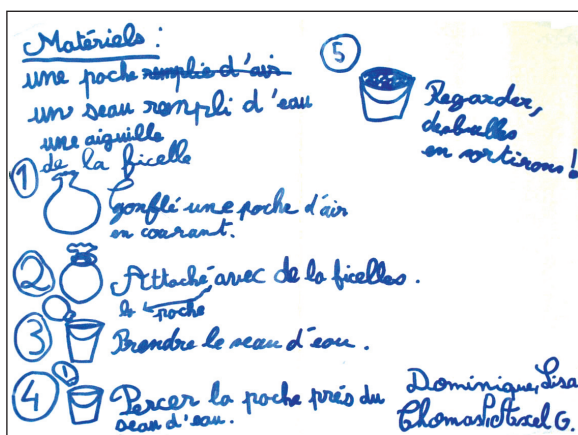 Matériels :
une poche remplie d'air
un seau rempli d'eau
une aiguille
de la ficelle
1
gonflé une poche d'air
en courant.
2 Attaché avec de la ficelles.
la poche
3 Prendre le seau d'eau.
4 Percer la poche prés du
seau d'eau.
5
Regarder,
desbulles
en sortirons !
Dominique, Lisa
Thomas, Axel G.